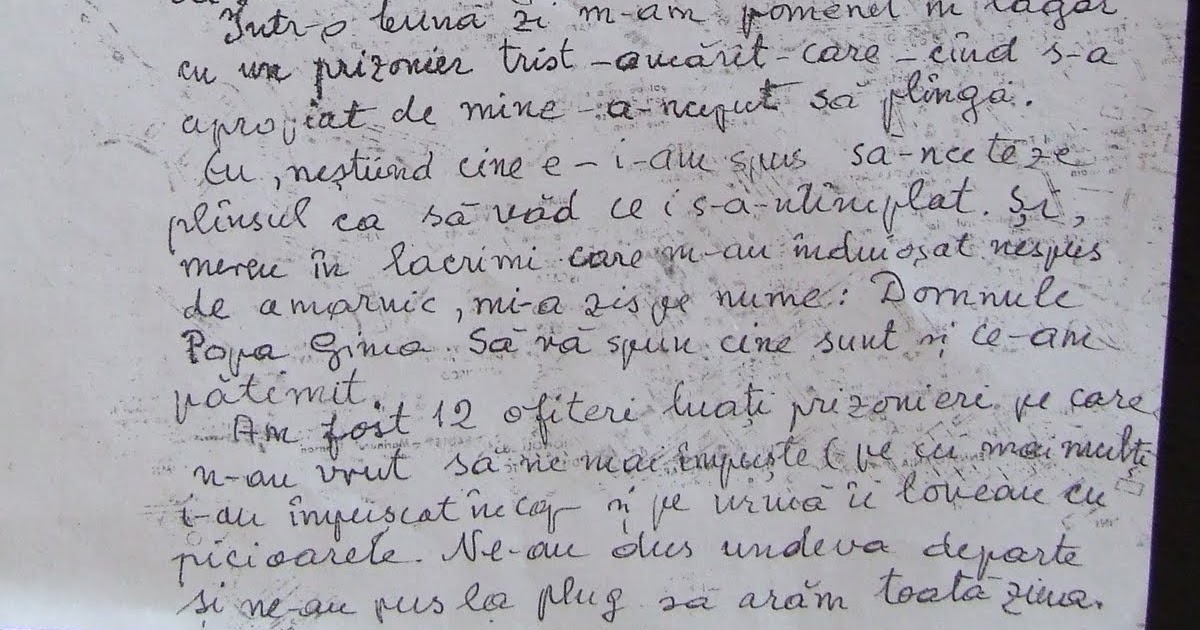 Într-o bună zi m-am pomenit în lagăr
cu un prizonier trist - amărît - care - cînd s-a
apropiat de mine - a-nceput să plîngă.
Eu, neștiind cine e - i-am spus să-nceteze
plînsul ca să văd ce i s-a-ntîmplat. Și,
mereu în lacrimi care m-au înduioșat nespus
de amarnic, mi-a zis pe nume: Domnule
Popa Gima. Să vă spun cine sunt și ce-am
pătimit.
Am fost 12 ofiteri luați prizonieri pe care
n-au vrut să ne mai împuște (pe cei mai mulți
i-au împușcat în cap și pe urmă îi loveau cu
picioarele. Ne-au dus undeva departe
și ne-au pus la plug să arăm toată ziua.